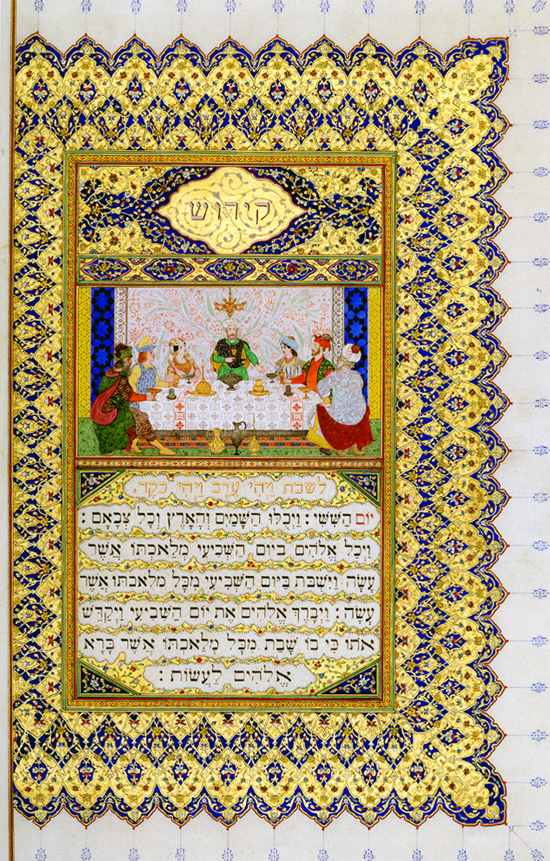 קידוש
לשבת ויהי ערב ויהי בקר.
יוֹם הַשִּׁשִּׁי: וַיְכֻלּוּ הַשָּׁמַיִם וְהָאָרֶץ וְכָל צְבָאָם:
וַיְכַל אֱלֹהִים בַּיּוֹם הַשְּׁבִיעִי מְלַאכְתּוֹ אֲשֶׁר
עָשָׂה וַיִּשְׁבֹּת בַּיּוֹם הַשְּׁבִיעִי מִכָּל מְלַאכְתּוֹ אֲשֶׁר
עָשָׂה: וַיְבָרֶךְ אֱלֹהִים אֶת יוֹם הַשְּׁבִיעִי וַיְקַדֵּשׁ
אֹתוֹ כִּי בוֹ שָׁבַת מִכָּל מְלַאכְתּוֹ אֲשֶׁר בָּרָא
אֱלֹהִים לַעֲשׂוֹת: